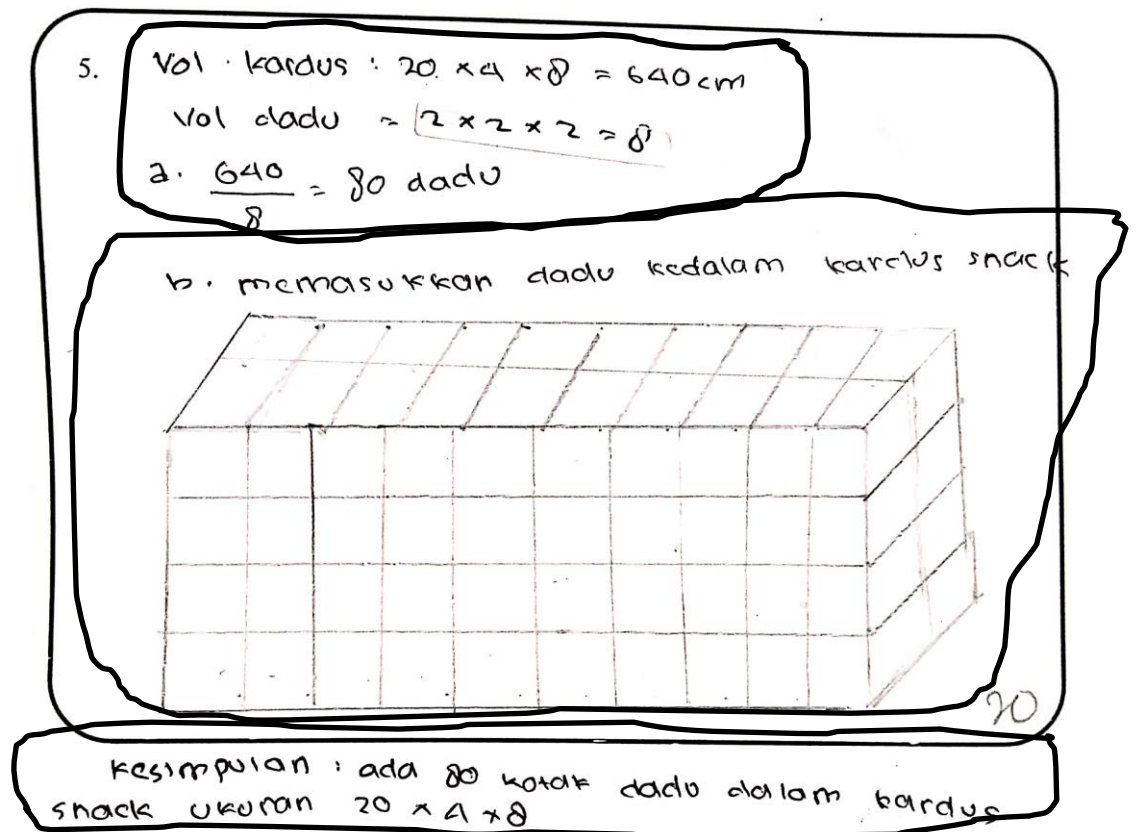 5. Vol. kardus : 20 × 4 × 8 = 640 cm
Vol dadu = 2 × 2 × 2 = 8
a. 640/8 = 80 dadu
b. memasukkan dadu kedalam kardus snack
20
kesimpulan : ada 80 kotak dadu dalam kardus
snack ukuran 20 × 4 × 8